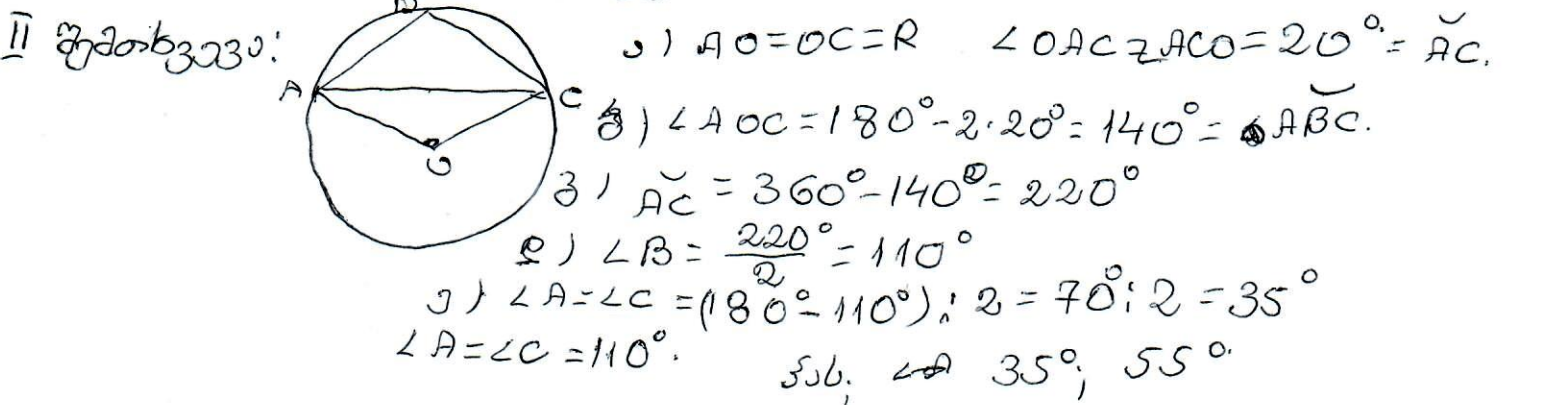 II შემთხვევა:
B
A
C
O
ა) AO=OC=R ∠OAC=∠ACO=20°=A͝C.
ბ) ∠AOC=180°-2·20°=140°=AB͝C.
გ) A͝C=360°-140°=220°
დ) ∠B=220°/2=110°
ე) ∠A=∠C=(180°-110°):2=70°:2=35°
∠A=∠C=110°.
პას; 35°; 55°.